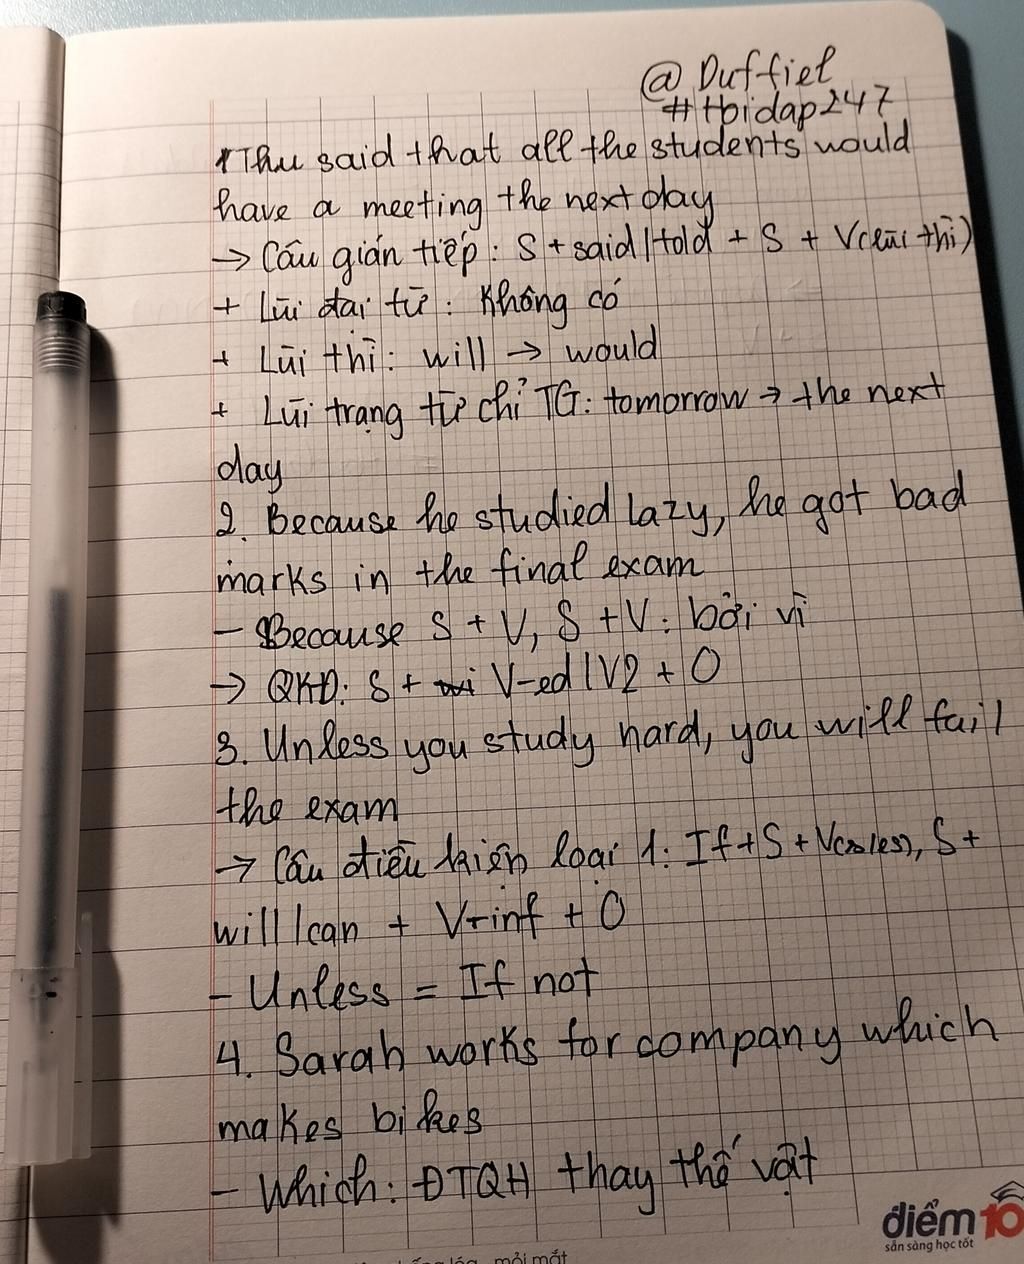 @ Duffiel
#tbidap247
1 Thu said that all the students would
have a meeting the next day
→ Câu gián tiếp: S + said/told + S + V(lùi thì)
+ Lùi đại từ: Không có
+ Lùi thì: will → would
+ Lùi trạng từ chỉ TG: tomorrow → the next
day
2. Because he studied lazy, he got bad
marks in the final exam
- Because S + V, S + V: bởi vì
→ QKĐ: S + V-ed/V2 + O
3. Unless you study hard, you will fail
the exam
→ Câu điều kiện loại 1: If + S + V(s/es), S +
will/can + V-inf + O
- Unless = If not
4. Sarah works for company which
makes bikes
- Which: ĐTQH thay thế vật
điểm 10
sẵn sàng học tốt
mỏi mắt